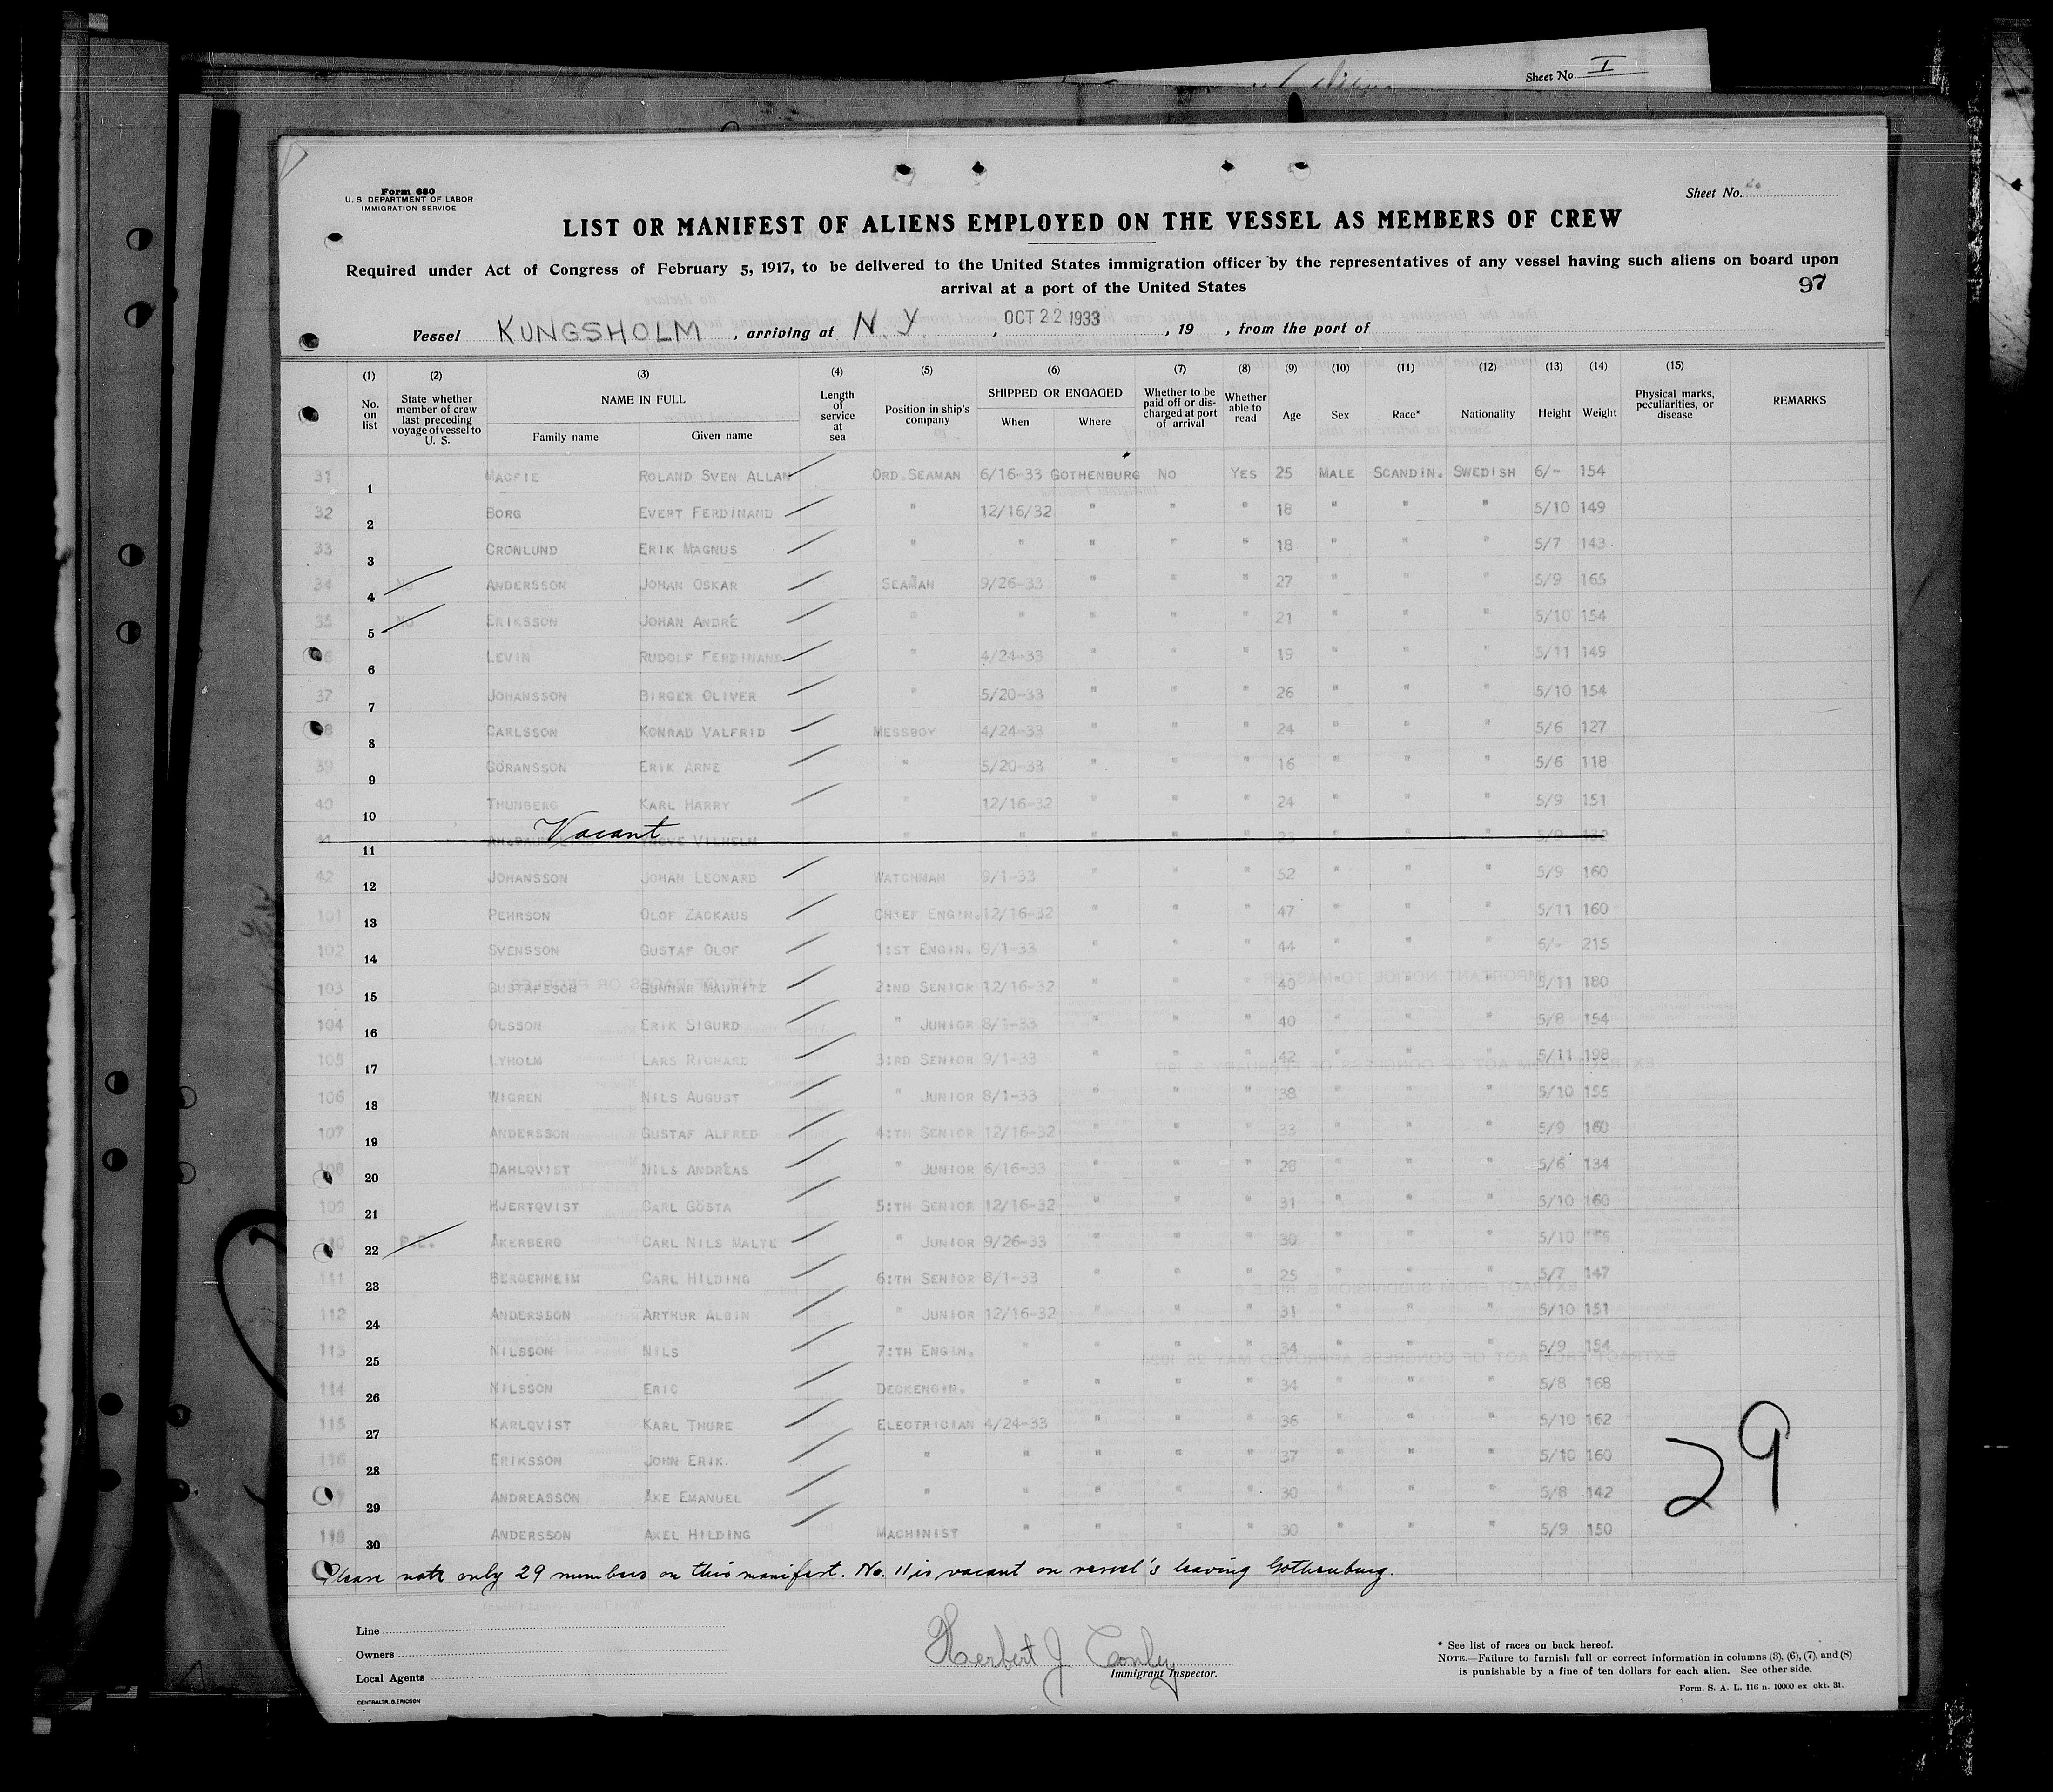 Sheet No. I
Form 680
U. S. DEPARTMENT OF LABOR
IMMIGRATION SERVICE
Sheet No.
LIST OR MANIFEST OF ALIENS EMPLOYED ON THE VESSEL AS MEMBERS OF CREW
Required under Act of Congress of February 5, 1917, to be delivered to the United States immigration officer by the representatives of any vessel having such aliens on board upon
arrival at a port of the United States
97
Vessel KUNGSHOLM, arriving at N.Y., OCT 22 1933, 19 , from the port of
(1) No. on list (2) State whether member of crew last preceding voyage of vessel to U. S. (3) NAME IN FULL Family name Given name (4) Length of service at sea (5) Position in ship's company (6) SHIPPED OR ENGAGED When Where (7) Whether to be paid off or discharged at port of arrival (8) Whether able to read (9) Age (10) Sex (11) Race* (12) Nationality (13) Height (14) Weight (15) Physical marks, peculiarities, or disease REMARKS
31 1 MACFIE ROLAND SVEN ALLAN ORD.SEAMAN 6/16-33 GOTHENBURG NO YES 25 MALE SCANDIN. SWEDISH 6/- 154
32 2 BORG EVERT FERDINAND " 12/16/32 " " " 18 " " " 5/10 149
33 3 CRONLUND ERIK MAGNUS " " " " " 18 " " " 5/7 143
34 4 NO ANDERSSON JOHAN OSKAR SEAMAN 9/26-33 " " " 27 " " " 5/9 165
35 5 NO ERIKSSON JOHAN ANDRÉ " " " " " 21 " " " 5/10 154
6 6 LEVIN RUDOLF FERDINAND " 4/24-33 " " " 19 " " " 5/11 149
37 7 JOHANSSON BIRGER OLIVER " 5/20-33 " " " 26 " " " 5/10 154
8 8 CARLSSON KONRAD VALFRID MESSBOY 4/24-33 " " " 24 " " " 5/6 127
39 9 GÖRANSSON ERIK ARNE " 5/20-33 " " " 16 " " " 5/6 118
40 10 THUNBERG KARL HARRY " 12/16-32 " " " 24 " " " 5/9 151
Vacant
11 VILHELM " " " " " 23 " " " 5/9 132
42 12 JOHANSSON JOHAN LEONARD WATCHMAN 9/1-33 " " " 52 " " " 5/9 160
101 13 PEHRSON OLOF ZACKAUS CHIEF ENGIN. 12/16-32 " " " 47 " " " 5/11 160
102 14 SVENSSON GUSTAF OLOF 1:ST ENGIN. 9/1-33 " " " 44 " " " 6/- 215
103 15 GUSTAFSSON GUNNAR MAURITZ 2:ND SENIOR 12/16-32 " " " 40 " " " 5/11 180
104 16 OLSSON ERIK SIGURD " JUNIOR 8/1-33 " " " 40 " " " 5/8 154
105 17 LYHOLM LARS RICHARD 3:RD SENIOR 9/1-33 " " " 42 " " " 5/11 198
106 18 WIGREN NILS AUGUST " JUNIOR 8/1-33 " " " 38 " " " 5/10 155
107 19 ANDERSSON GUSTAF ALFRED 4:TH SENIOR 12/16-32 " " " 33 " " " 5/9 160
108 20 DAHLQVIST NILS ANDREAS " JUNIOR 6/16-33 " " " 28 " " " 5/6 134
109 21 HJERTQVIST CARL GÖSTA 5:TH SENIOR 12/16-32 " " " 31 " " " 5/10 160
110 22 P.E. ÅKERBERG CARL NILS MALTE " JUNIOR 9/26-33 " " " 30 " " " 5/10
111 23 BERGENHEIM CARL HILDING 6:TH SENIOR 8/1-33 " " " 25 " " " 5/7 147
112 24 ANDERSSON ARTHUR ALBIN " JUNIOR 12/16-32 " " " 31 " " " 5/10 151
113 25 NILSSON NILS 7:TH ENGIN. " " " " 34 " " " 5/9 154
114 26 NILSSON ERIC DECKENGIN. " " " " 34 " " " 5/8 168
115 27 KARLQVIST KARL THURE ELECTRICIAN 4/24-33 " " " 36 " " " 5/10 162
116 28 ERIKSSON JOHN ERIK " " " " " 37 " " " 5/10 160
29 ANDREASSON ÅKE EMANUEL " " " " " 30 " " " 5/8 142
118 30 ANDERSSON AXEL HILDING MACHINIST " " " " 30 " " " 5/9 150
29
Please note only 29 numbers on this manifest. No. 11 is vacant on vessel's leaving Gothenburg.
Line
Owners
Local Agents
CENTRALTR.,G.ERICSON
Herbert J Conley
Immigrant Inspector.
* See list of races on back hereof.
NOTE.—Failure to furnish full or correct information in columns (3), (6), (7), and (8)
is punishable by a fine of ten dollars for each alien. See other side.
Form. S. A. L. 116 n. 10000 ex okt. 31.